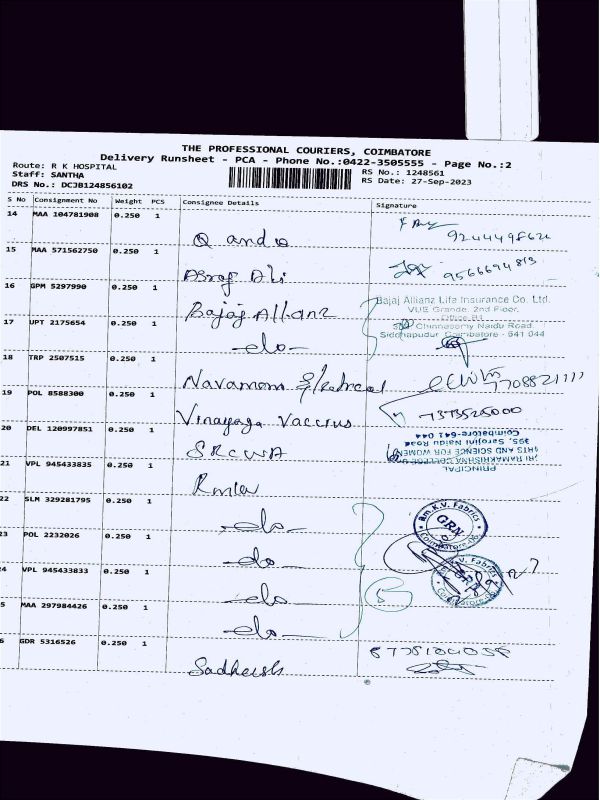 THE PROFESSIONAL COURIERS, COIMBATORE
Delivery Runsheet - PCA - Phone No.:0422-3505555 - Page No.:2
Route: R K HOSPITAL
Staff: SANTHA
DRS No.: DCJB124856102
RS No.: 1248561
RS Date: 27-Sep-2023
S No Consignment No Weight PCS Consignee Details Signature
14 MAA 104781908 0.250 1
15 MAA 571562750 0.250 1
9566694813
16 GPM 5297990 0.250 1 Bajaj Allianz
Bajaj Allianz Life Insurance Co. Ltd.
VUE Grande, 2nd Floor,
Chinnasamy Naidu Road,
Siddhapudur, Coimbatore - 641 044
17 UPT 2175654 0.250 1 -do-
18 TRP 2507515 0.250 1 Navamani
7708821111
19 POL 8588300 0.250 1 Vinayaga
7373525000
20 DEL 120997851 0.250 1 SRCWA
PRINCIPAL
SRI RAMAKRISHNA COLLEGE OF
ARTS AND SCIENCE FOR WOMEN
395, Sarojini Naidu Road
Coimbatore-641 044
21 VPL 945433835 0.250 1
22 SLM 329281795 0.250 1 -do-
B.M.K.V. Fabrics
GRN
Coimbatore
23 POL 2232026 0.250 1 -do-
24 VPL 945433833 0.250 1 -do-
5 MAA 297984426 0.250 1 -do-
6 GDR 5316526 0.250 1